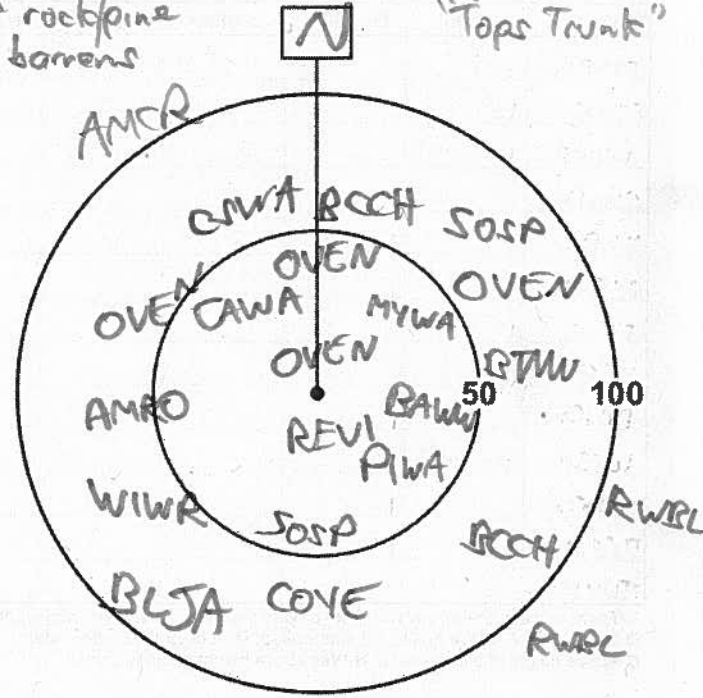 rock/pine
barrens
N
"Tops Trunk"
AMCR
CSWA BCCH SOSP
OVEN
OVEN
OVEN CAWA MYWA
OVEN
BTNW
50 100
AMRO
BAWW
REVI
PIWA
WIWR
RWBL
SOSP
BCCH
BLJA COYE
RWBL